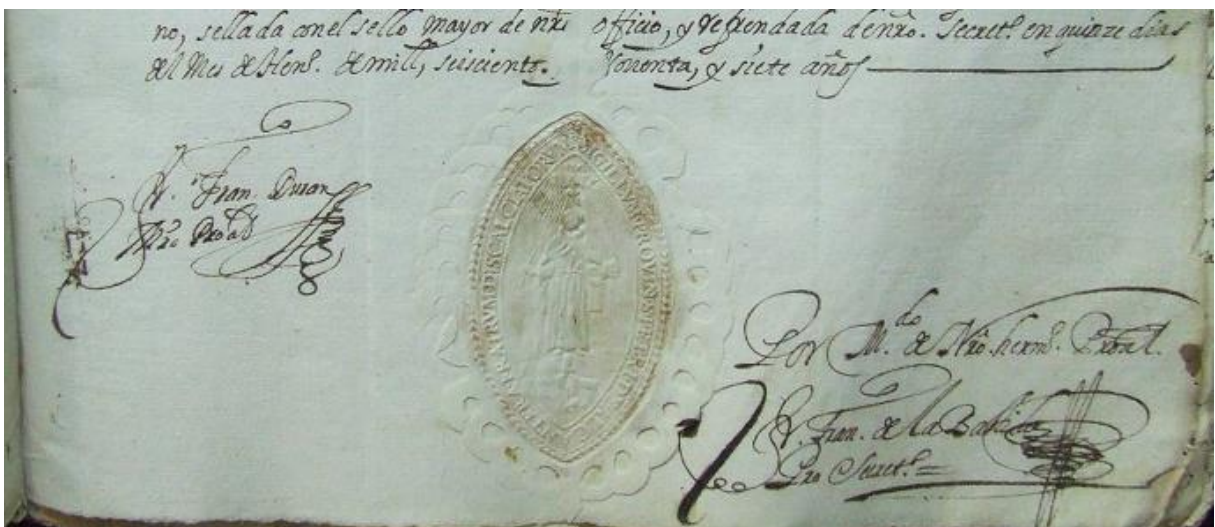 no, sellada con el sello mayor de nro officio, y refrendada de nro. Secret.º en quinze dias
del Mes de Hen.º de mill, seiscientos. Nouenta, y siete años
Fr. Fran. Duran
Mro Pro.al
SIGILLVM PROVIN FRATRVM DISCALCIATORVM
Por M.do de Nro. herm.º Prou.l.
Fr. Fran. de la
Pro Secret.º